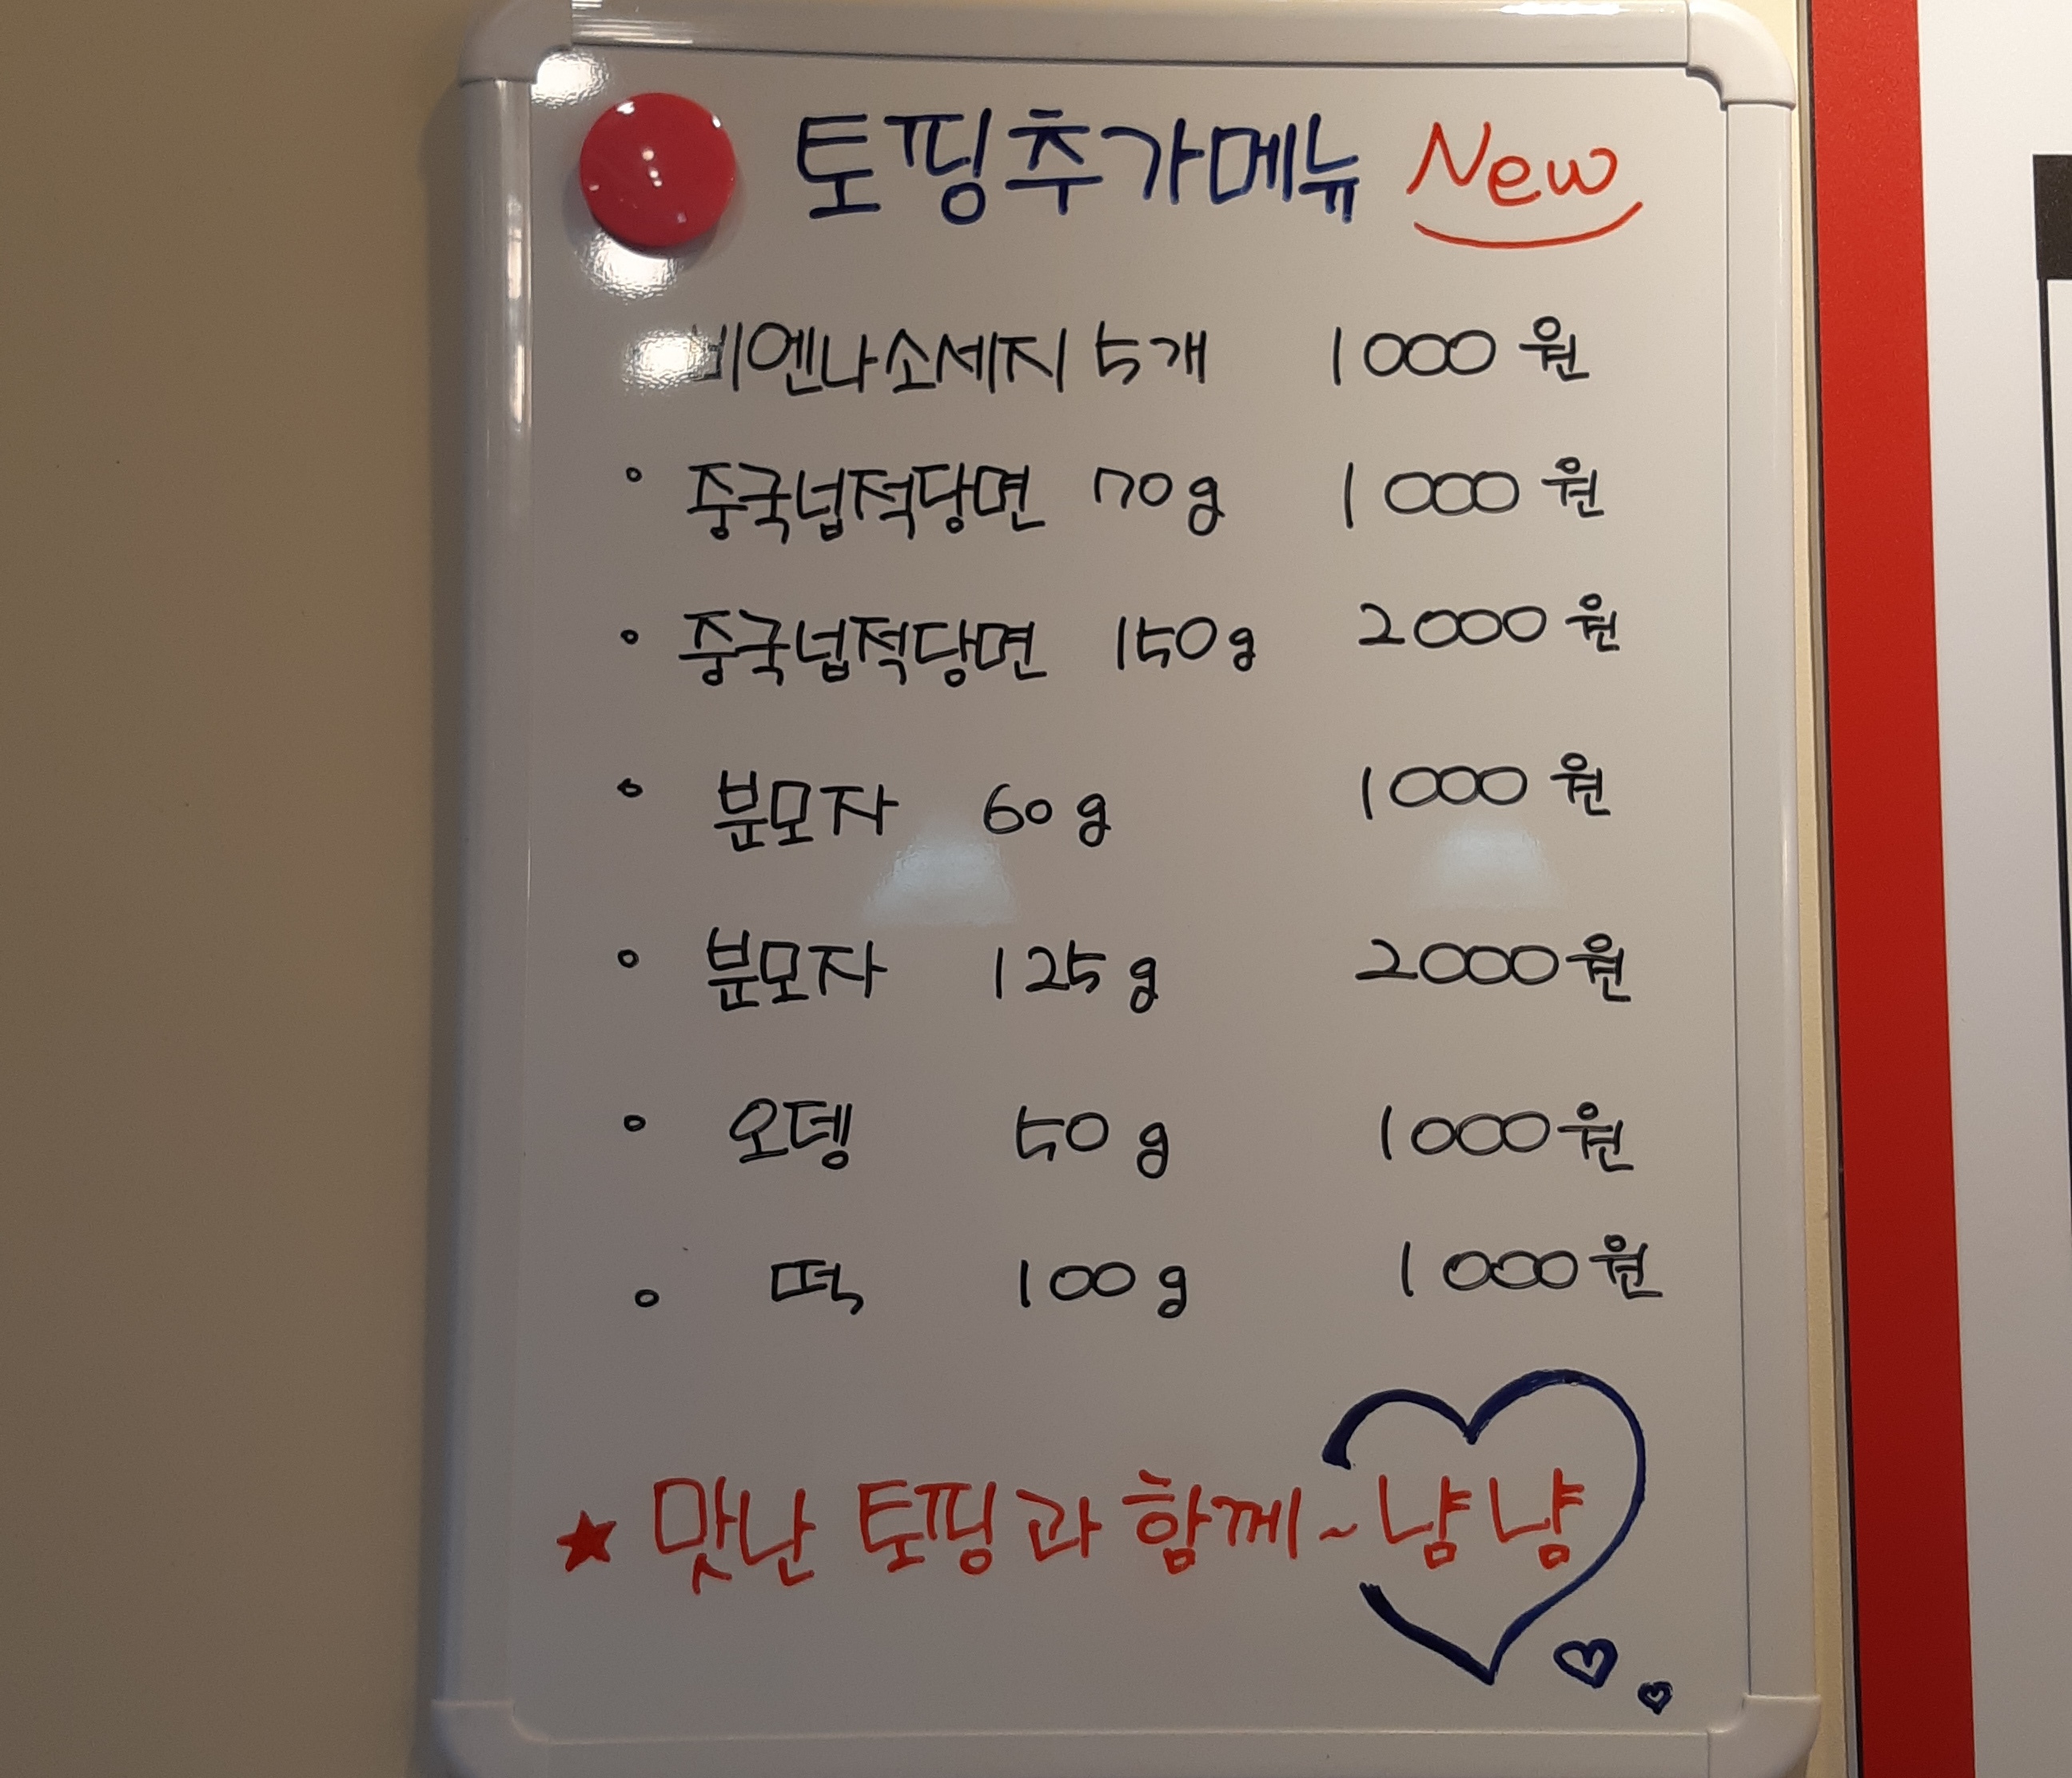 토핑추가메뉴 New
비엔나소세지 5개 1000원
◦ 중국넙적당면 70g 1000원
◦ 중국넙적당면 150g 2000원
◦ 분모자 60g 1000원
◦ 분모자 125g 2000원
◦ 오뎅 50g 1000원
◦ 떡 100g 1000원
★ 맛난 토핑과 함께~냠냠